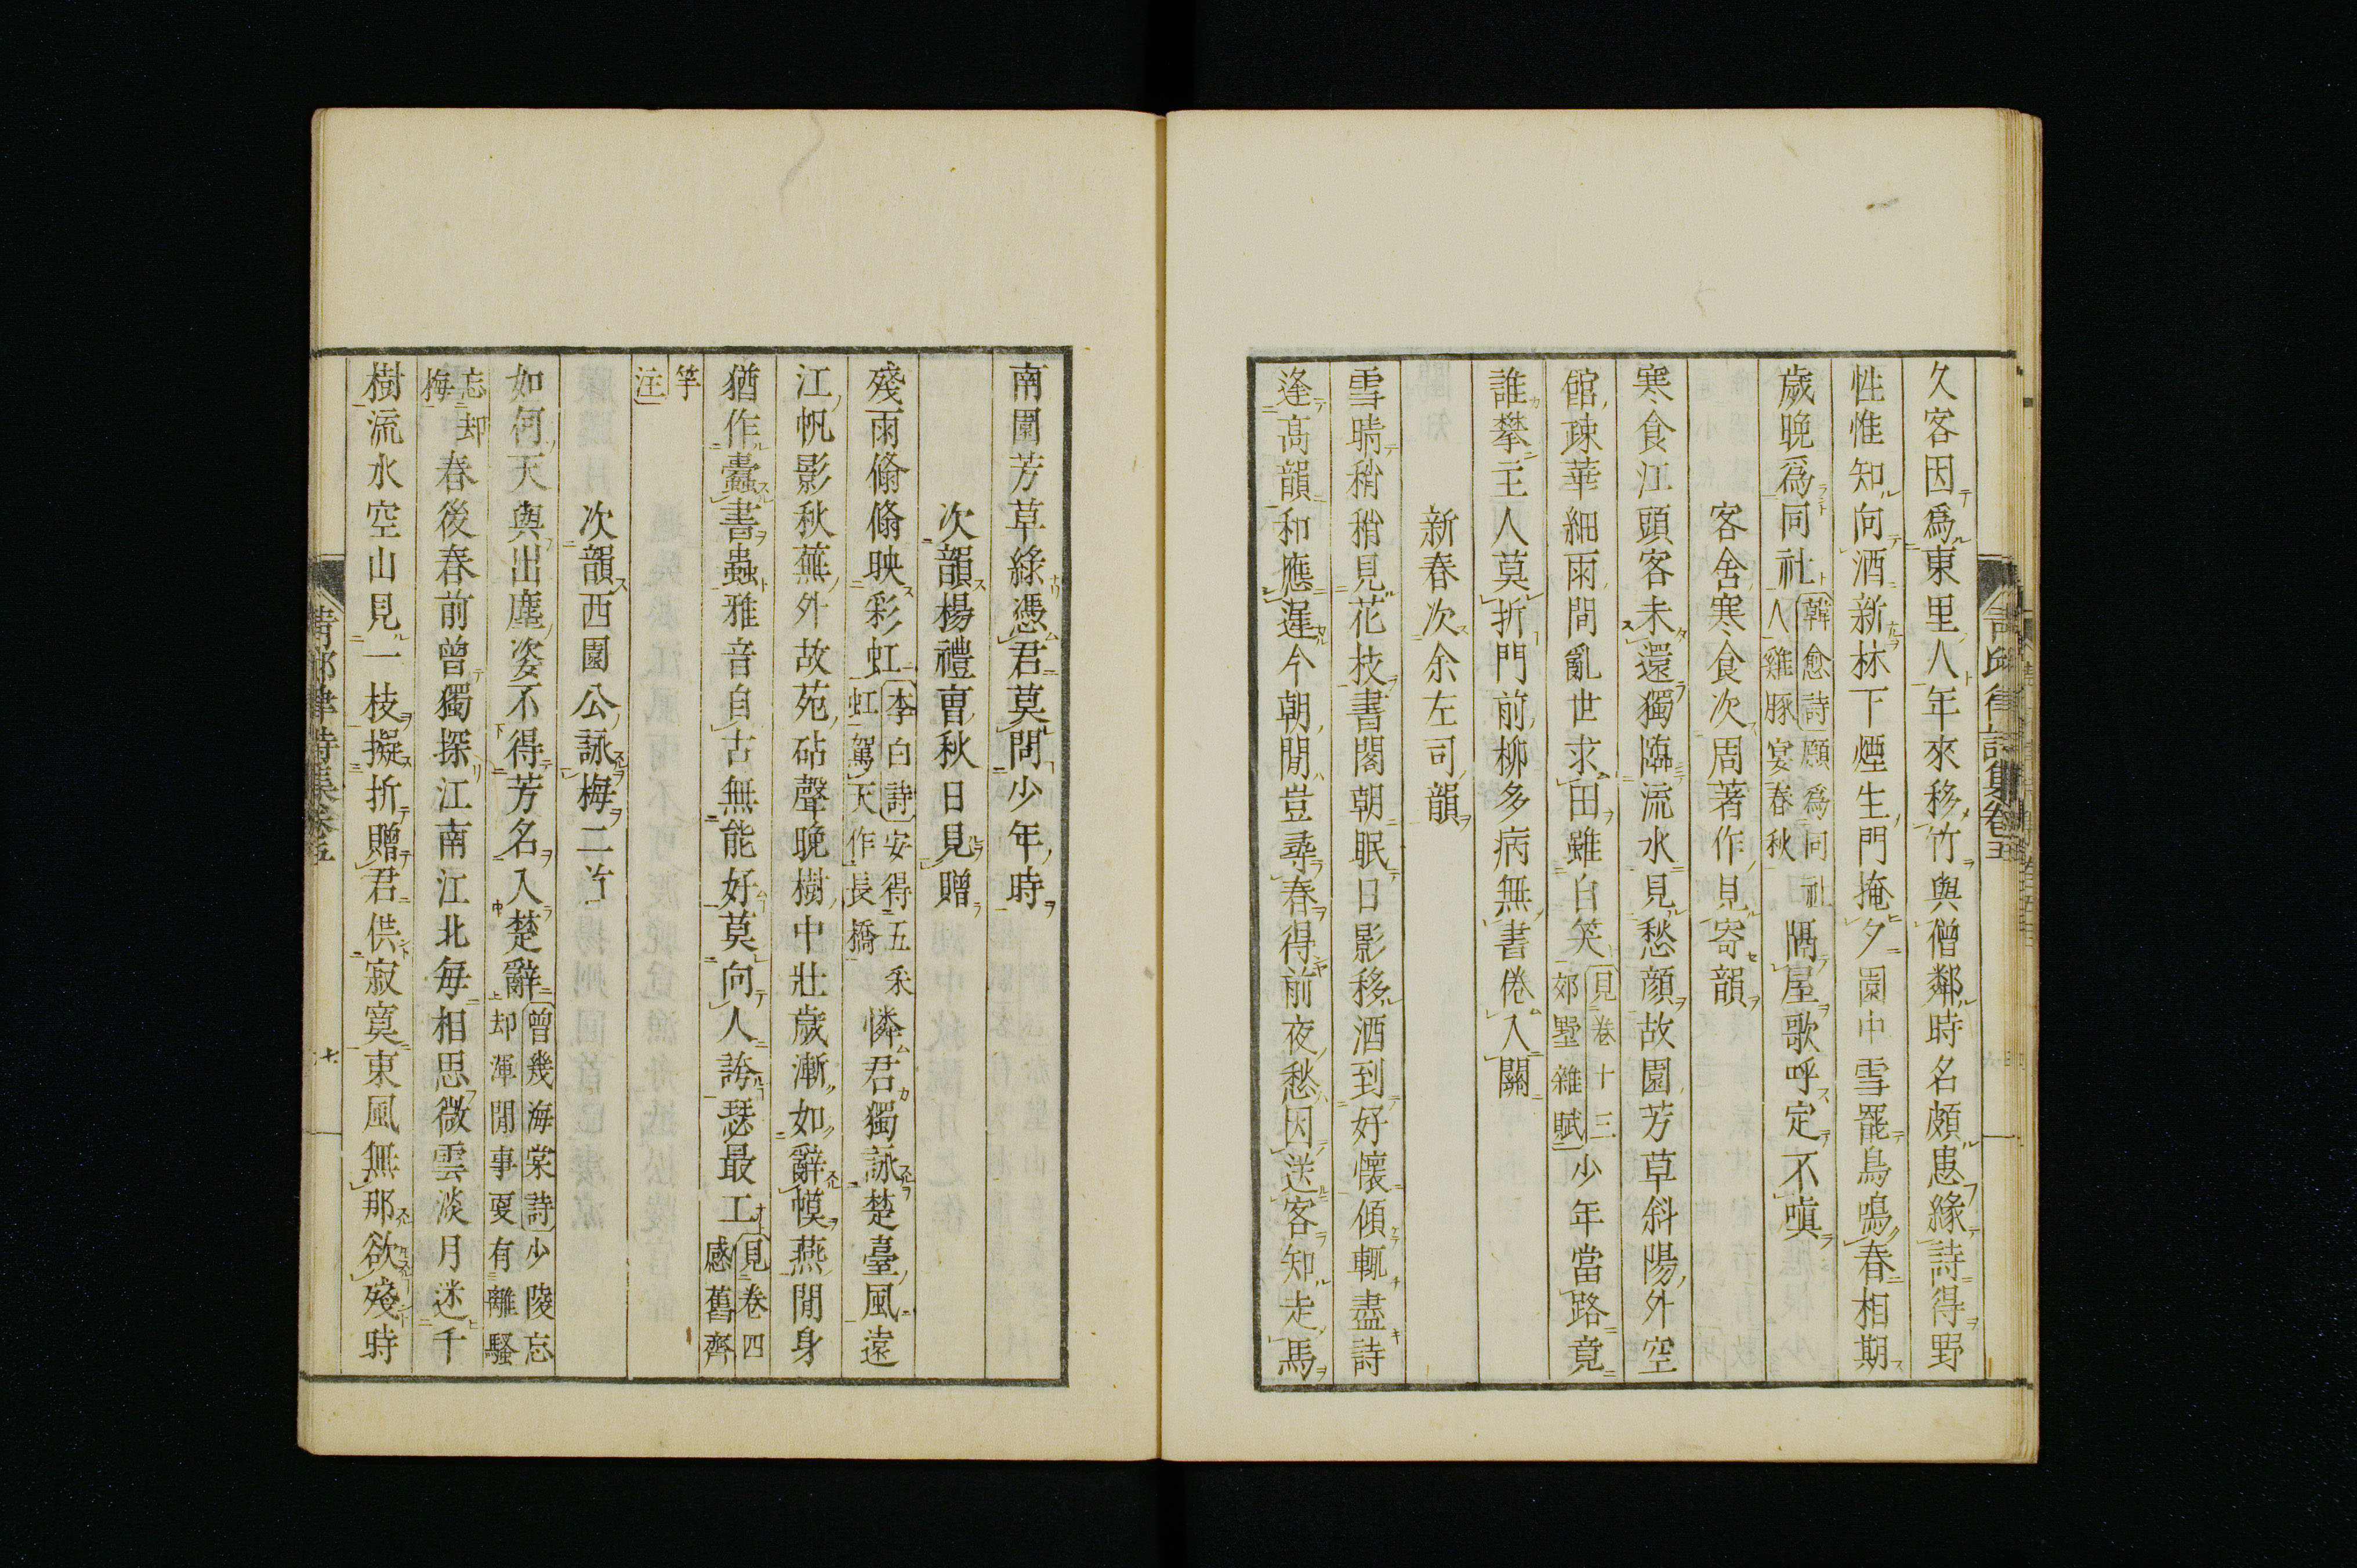 久客因爲東里人年來移竹與僧鄰時名頗患緣詩得野
性惟知向酒新林下煙生門掩夕園中雪罷鳥鳴春相期
歲晚爲同社〔韓愈詩〕願爲同社人雞豚宴春秋隔屋歌呼定不嗔
客舍寒食次周著作見寄韻
寒食江頭客未還獨臨流水見愁顏故園芳草斜陽外空
館疎華細雨間亂世求田雖白笑〔見卷十三郊墅雜賦〕少年當路竟
誰攀主人莫折門前柳多病無書倦入關
新春次余左司韻
雪晴稍稍見花枝書閣朝眠日影移酒到好懷傾輒盡詩
逢高韻和應遲今朝閒豈尋春得前夜愁因送客知走馬
青邱律詩集卷五
南園芳草綠憑君莫問少年時
次韻楊禮曹秋日見贈
殘雨翛翛映彩虹〔李白詩〕安得五采虹駕天作長橋憐君獨詠楚臺風遠
江帆影秋蕪外故苑砧聲晚樹中壯歲漸如辭幙燕閒身
猶作蠹書蟲雅音自古無能好莫向人誇瑟最工〔見卷四感舊齊
竽注〕
次韻西園公詠梅二首
如何天與出塵姿不得芳名入楚辭〔曾幾海棠詩〕少陵忘却渾閒事更有離騷
忘却梅春後春前曾獨探江南江北每相思微雲淡月迷千
樹流水空山見一枝擬折贈君供寂寞東風無那欲殘時
青邱律詩集卷五
七